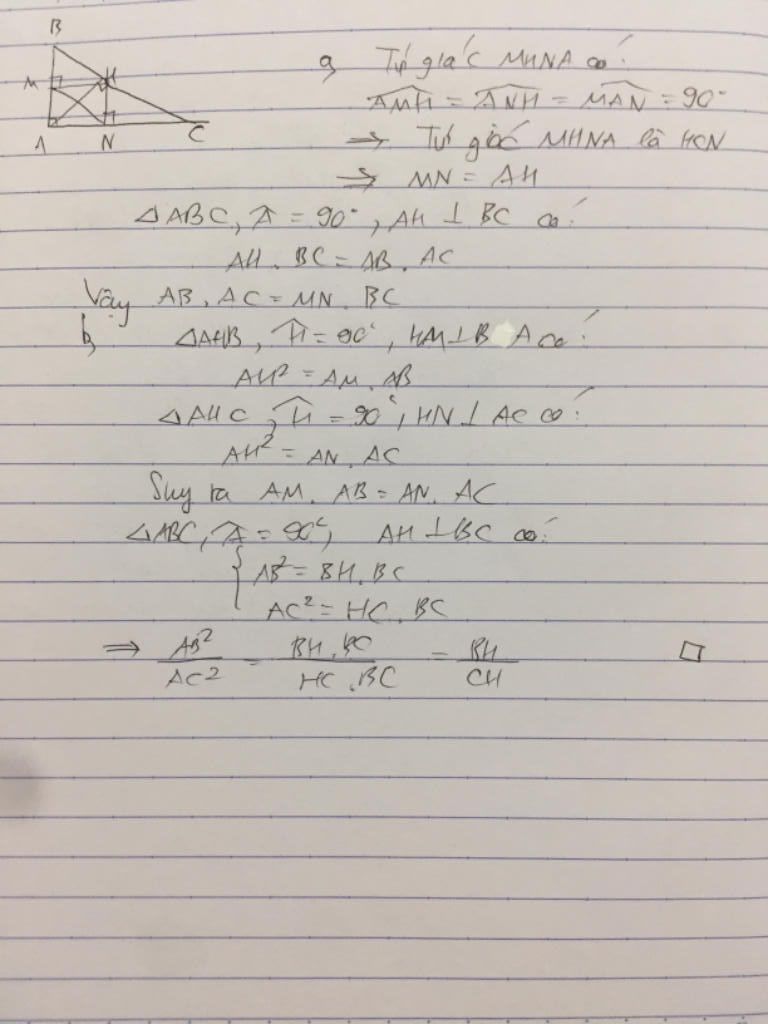 B
M H
A N C
a, Tứ giác MHNA có:
\widehat{AMH} = \widehat{ANH} = \widehat{MAN} = 90°
⇒ Tứ giác MHNA là HCN
⇒ MN = AH
△ABC, \widehat{A} = 90°, AH ⊥ BC có:
AH . BC = AB . AC
Vậy AB . AC = MN . BC
b, △AHB, \widehat{H} = 90°, HM ⊥ BA có:
AH² = AM . AB
△AHC, \widehat{H} = 90°, HN ⊥ AC có:
AH² = AN . AC
Suy ra AM . AB = AN . AC
△ABC, \widehat{A} = 90°, AH ⊥ BC có:
{ AB² = BH . BC
AC² = HC . BC
⇒ \frac{AB²}{AC²} = \frac{BH . BC}{HC . BC} = \frac{BH}{CH} □